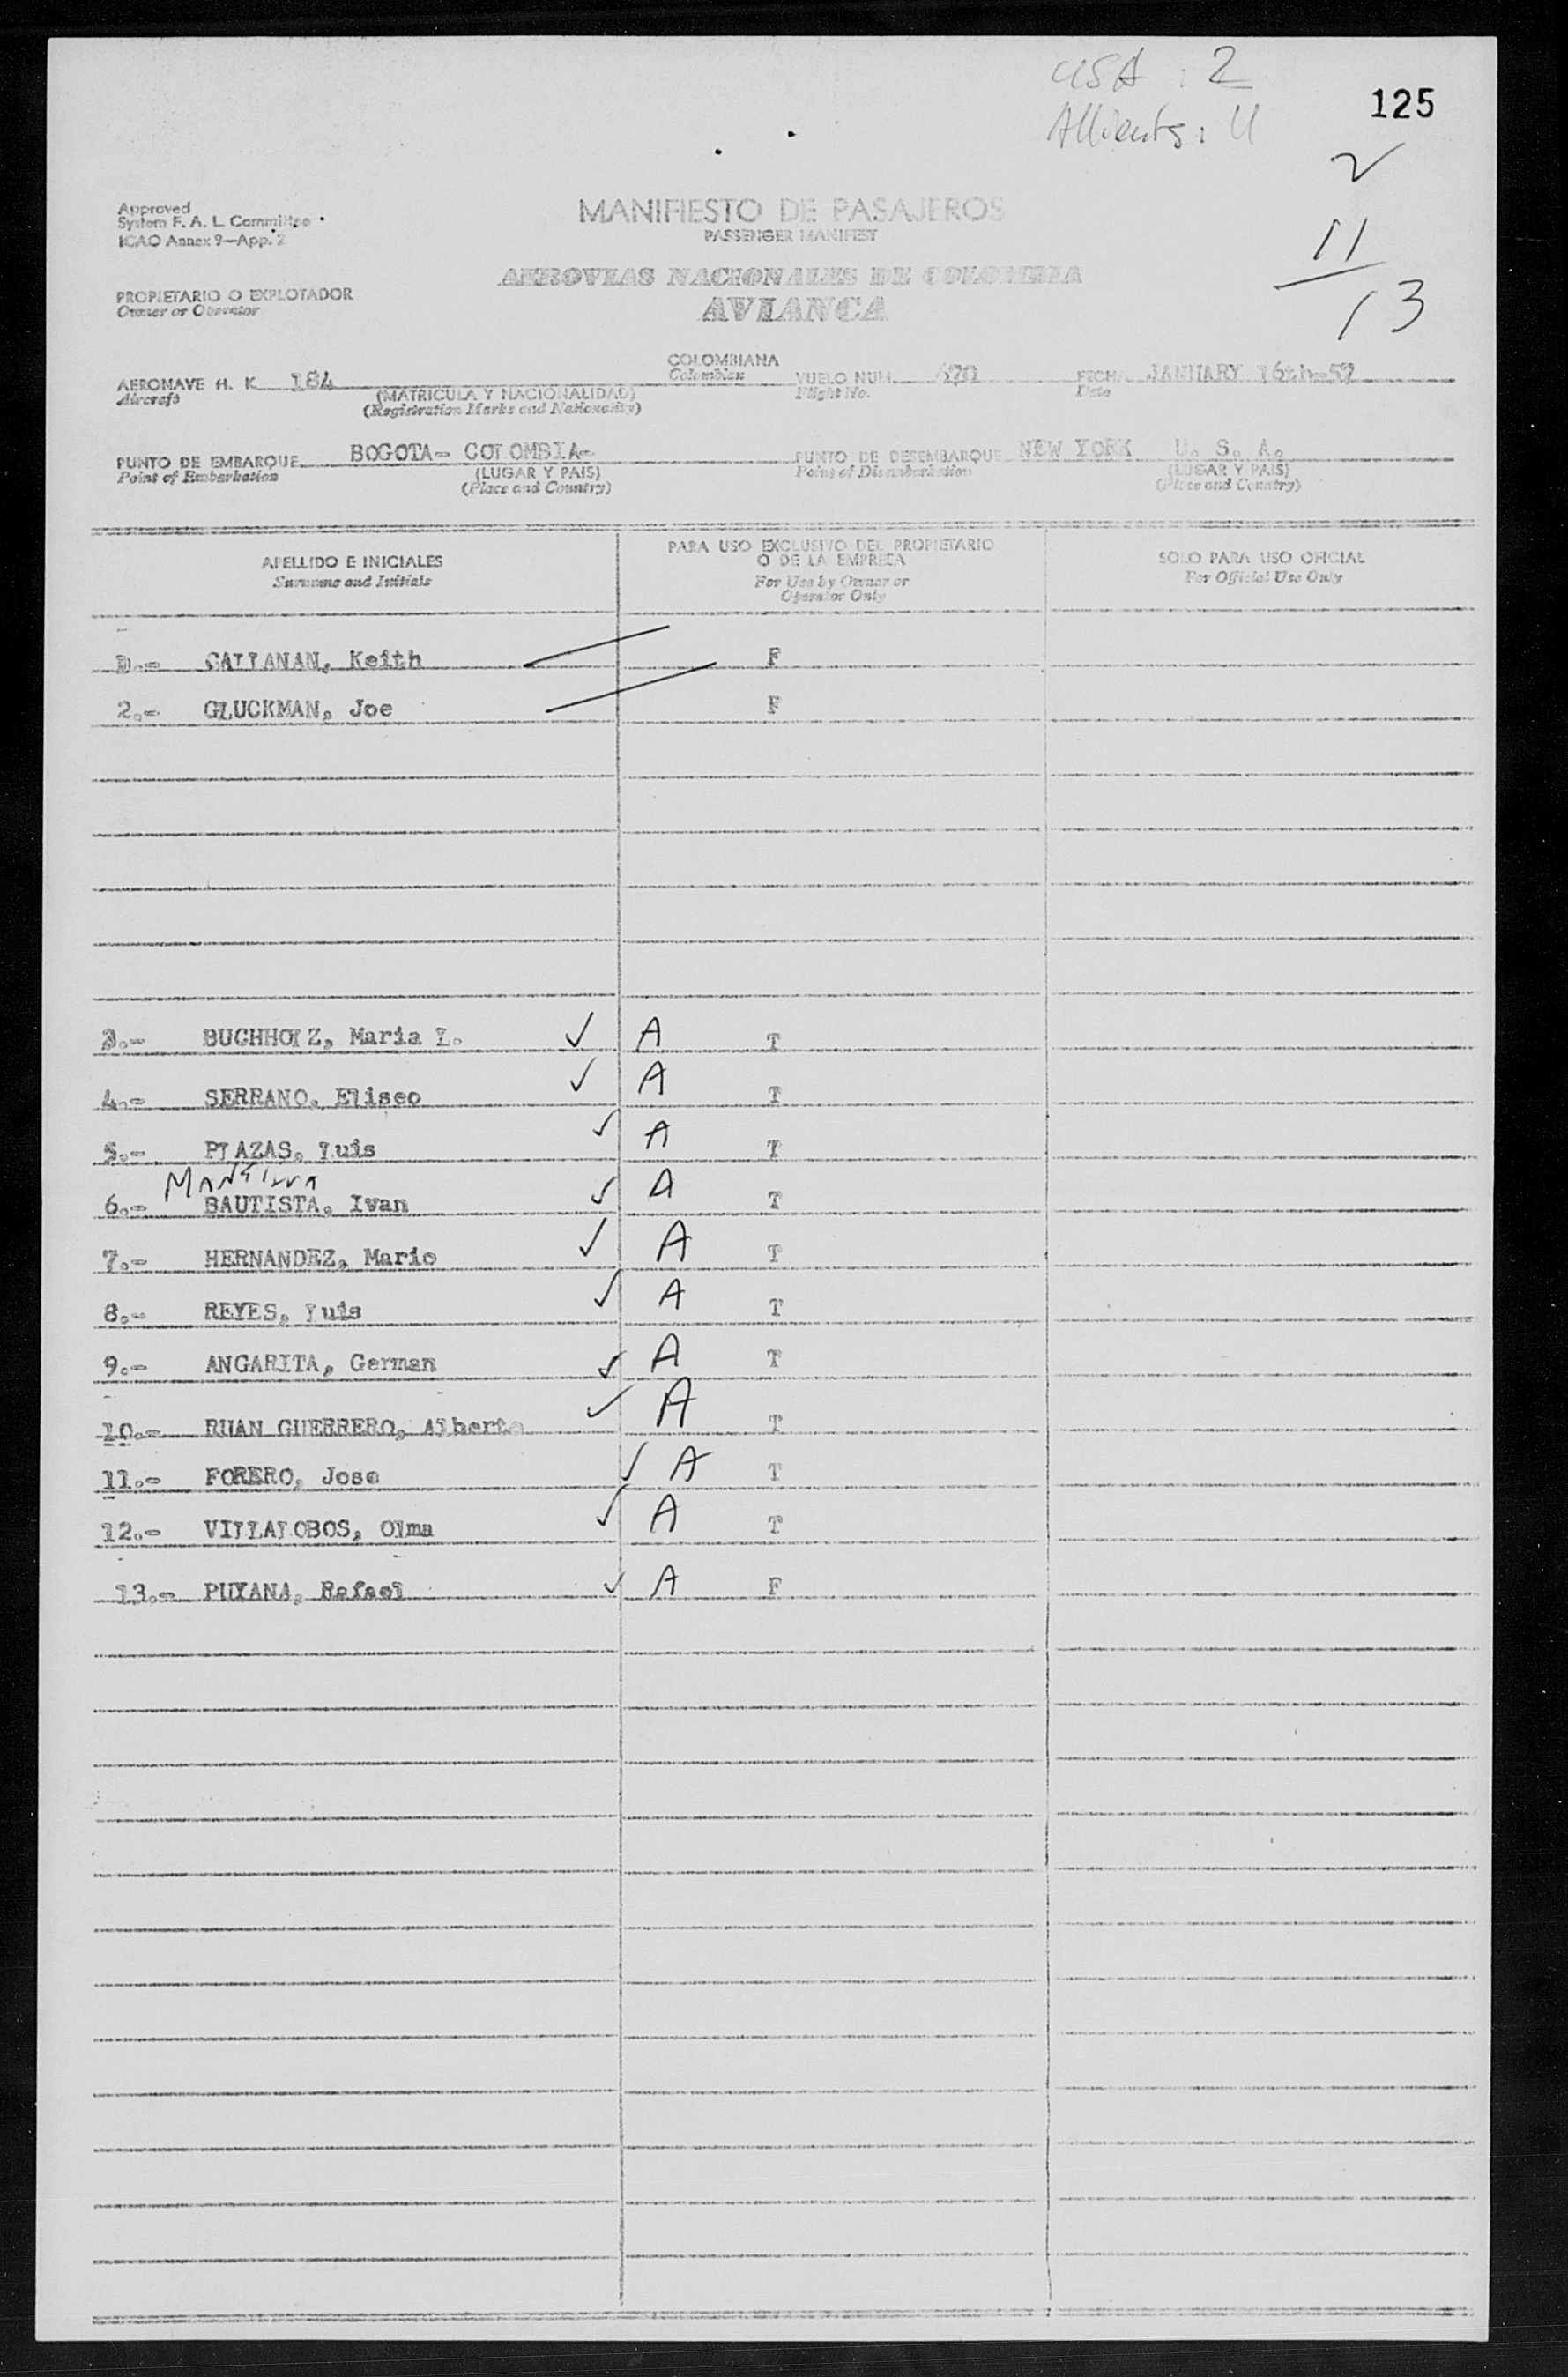 USA : 2
125
Alients : 11
2
11
13
Approved
System F. A. L. Committee
ICAO Annex 9—App. 2
MANIFIESTO DE PASAJEROS
PASSENGER MANIFEST
AEROVIAS NACIONALES DE COLOMBIA
AVIANCA
PROPIETARIO O EXPLOTADOR
Owner or Operator
AERONAVE H. K 184
Aircraft
(MATRICULA Y NACIONALIDAD)
(Registration Marks and Nationality)
COLOMBIANA
Colombian
VUELO NUM.
Flight No.
FECHA JANUARY 16th-57
Date
PUNTO DE EMBARQUE BOGOTA- COLOMBIA-
Point of Embarkation
(LUGAR Y PAIS)
(Place and Country)
PUNTO DE DESEMBARQUE NEW YORK U. S. A.
Point of Disembarkation
(LUGAR Y PAIS)
(Place and Country)
APELLIDO E INICIALES
Surname and Initials
PARA USO EXCLUSIVO DEL PROPIETARIO
O DE LA EMPRESA
For Use by Owner or
Operator Only
SOLO PARA USO OFICIAL
For Official Use Only
1.- CALLANAN, Keith F
2.- GLUCKMAN, Joe F
3.- BUCHHOLZ, Maria L. ✓ A T
4.- SERRANO, Eliseo ✓ A T
5.- PLAZAS, Luis ✓ A T
MANTILLA
6.- BAUTISTA, Ivan ✓ A T
7.- HERNANDEZ, Mario ✓ A T
8.- REYES, Luis ✓ A T
9.- ANGARITA, German ✓ A T
10.- RUAN GUERRERO, Alberto ✓ A T
11.- FORERO, Jose ✓ A T
12.- VILLALOBOS, Olma ✓ A T
13.- PUYANA, Rafael ✓ A F